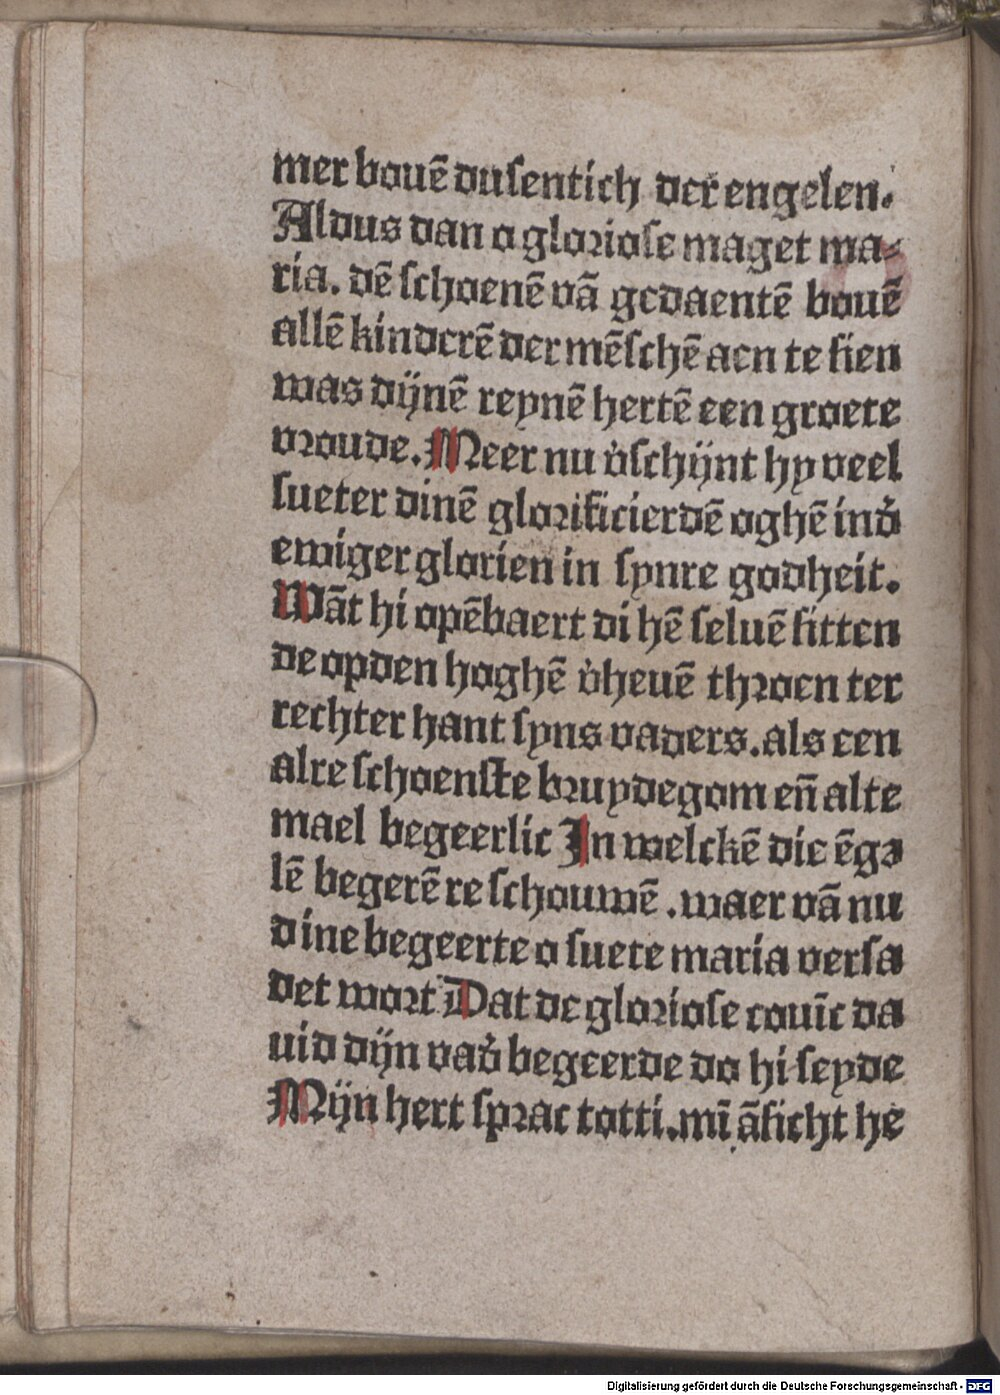 mer bouē dusentich der engelen.
Aldus dan o gloriose maget ma-
ria. dē schoenē vā gedaentē bouē
allē kinderē der mēschē aen te sien
was dijnē reynē hertē een groete
vroude. Meer nu v̄schijnt hy veel
sueter dinē glorificierdē oghē ind̄
ewiger glorien in synre godheit.
Wāt hi opēbaert di hē seluē sitten
de op den hoghē v̄heuē throen ter
rechter hant syns vaders. als een
alre schoenste bruydegom en̄ alte
mael begeerlic In welckē die ēge
lē begerē te schouwē. waer vā nu
dine begeerte o suete maria versa
det wort Dat de gloriose couīc da
uid dijn vad̄ begeerde do hi seyde
Mijn hert sprac totti. mī āsicht he
Digitalisierung gefördert durch die Deutsche Forschungsgemeinschaft - DFG